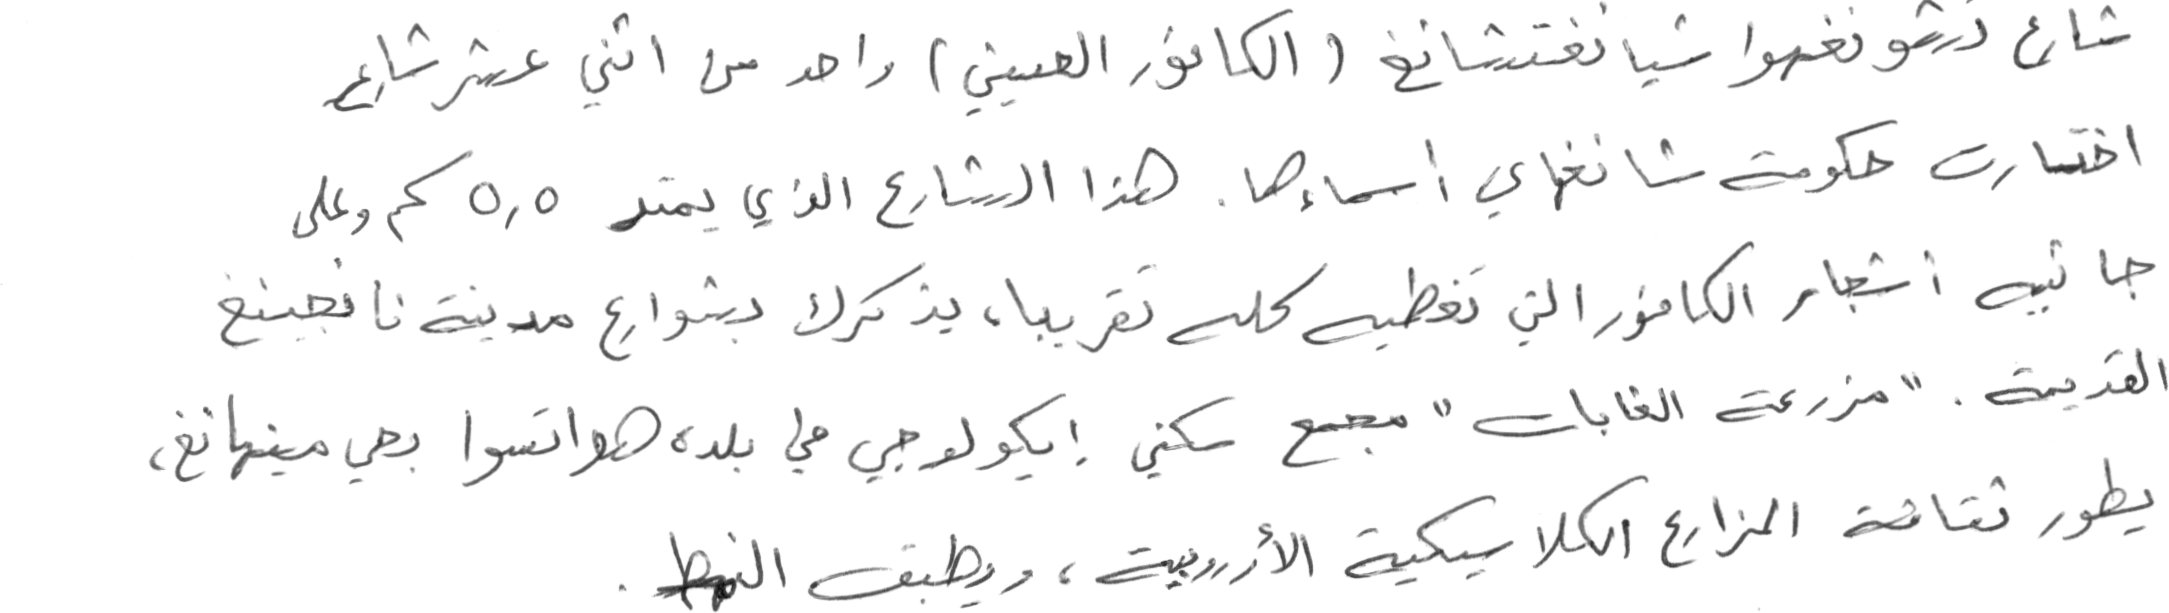 شارع تشونغهوا شيانغتشانغ (الكافور الصيني) واحد من اثني عشر شارع
اختارت حكومة شانغهاي أسماءها. هذا الشارع الذي يمتد ٥,٥ كم وعلى
جانبيه أشجار الكافور التي تغطيه كله تقريبا، يذكرك بشوارع مدينة نانجينغ
القديمة. "مزرعة الغابات" مجمع سكني إيكولوجي في بلدة هواتسوا بحي مينهانغ،
يطور ثقافة المزارع الكلاسيكية الأوروبية، ويطبق النمط.